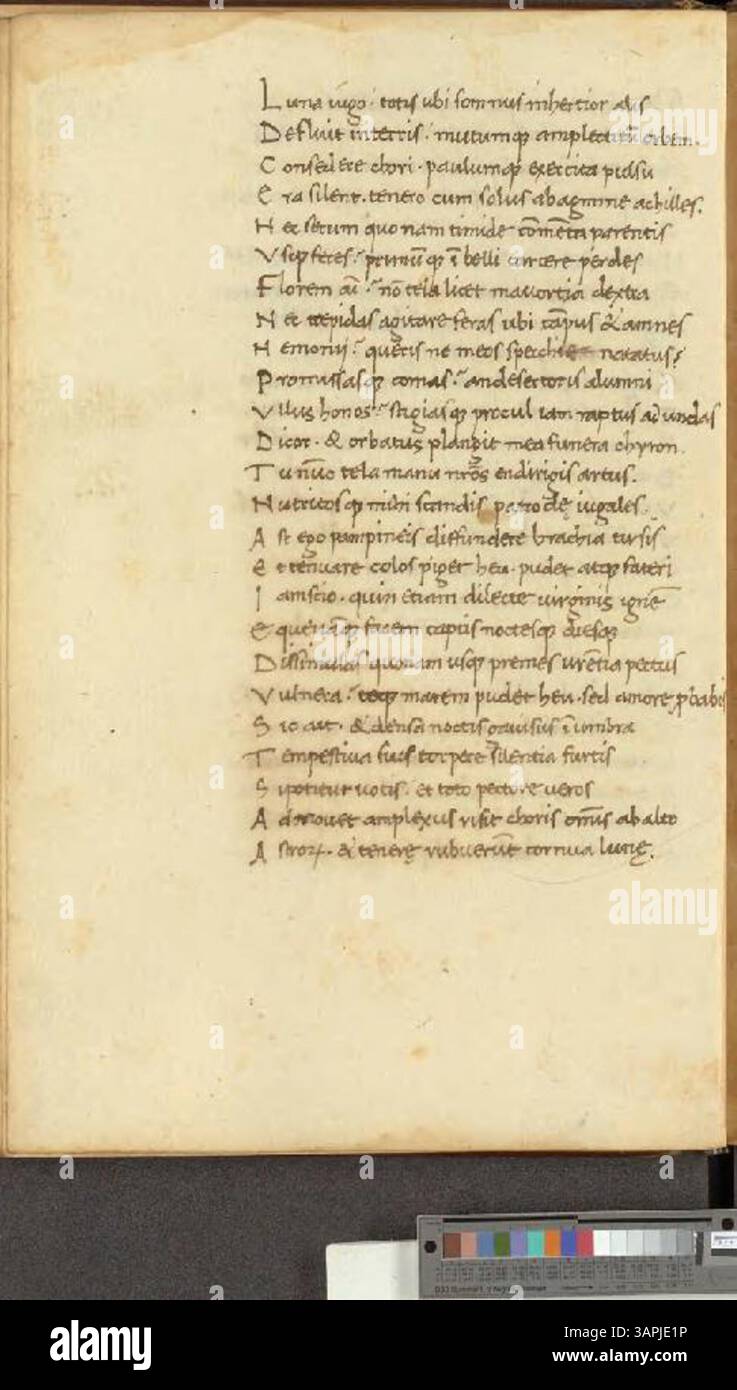 Luna iugo. totis ubi somnus inhertior alis
Defluit interris. mutumqȝ amplectit̄ orbem.
Consedere chori. paulumqȝ exercita pulsu
Era silent. tenero cum solus abagmine achilles.
Hec secum quonam timide cōmēta parentis
Vsqȝ feres? primūqȝ ī belli carcere perdes
Florem aī? nō tela licet mauortia dextra
Nec trepidas agitare feras ubi cāpus & amnes
Hemonii? queris ne meos sperchie natatus?
Promissasqȝ comas? andesertoris alumni
Vllus honos? stigiasqȝ procul iam raptus ad undas
Dicor. & orbatus plangit mea funera chyron.
Tu nūc tela manu nr̄os
Nutritosqȝ mihi scandis patrocle iugales.
Ast ego pampineis diffundere brachia tirsis
Et tenuare colos piget heu. pudet atqȝ fateri
Iamscio. quin etiam dilecte uirginis ignē
Equeuāqȝ facem captis noctesqȝ diesqȝ
Dissimulas quonam usqȝ premes urētia pectus
Vulnera? teqȝ marem pudet heu. sed amore
Sic ait. & densa noctis gauisus ī umbra
Tempestiua suis torpere silentia furtis
Sipotitur uotis. et toto pectore ueros
Admouet amplexus risit choris om̄is ab alto
Astroꝝ. & tenerę rubuerūt cornua lunę.
alamy
a
alamy
Image ID: 3APJE1P
www.alamy.com